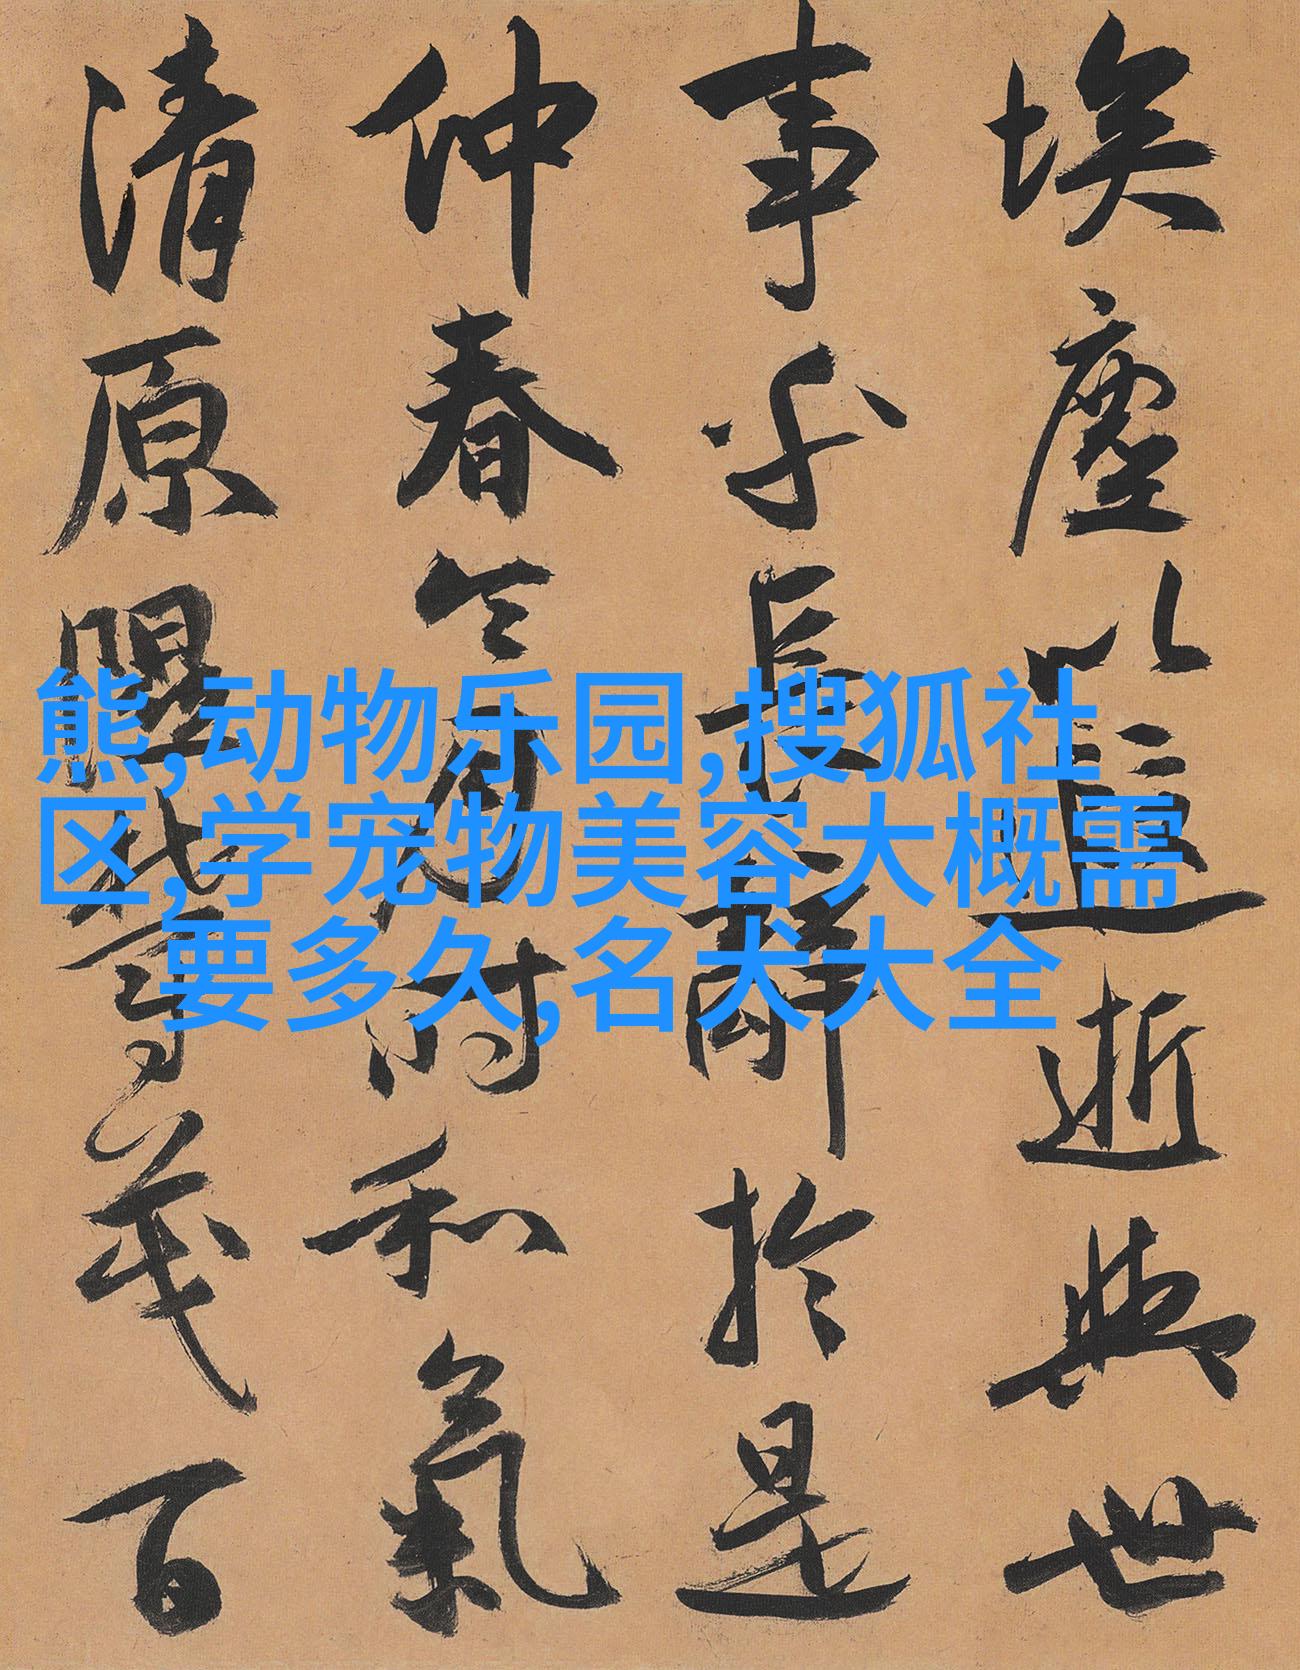 埃塵以遐逝與世
事乎長辭於是
仲春令月時和氣
清原隰鬱茂百
熊,动物乐园,搜狐社
区,学宠物美容大概需
要多久,名犬大全